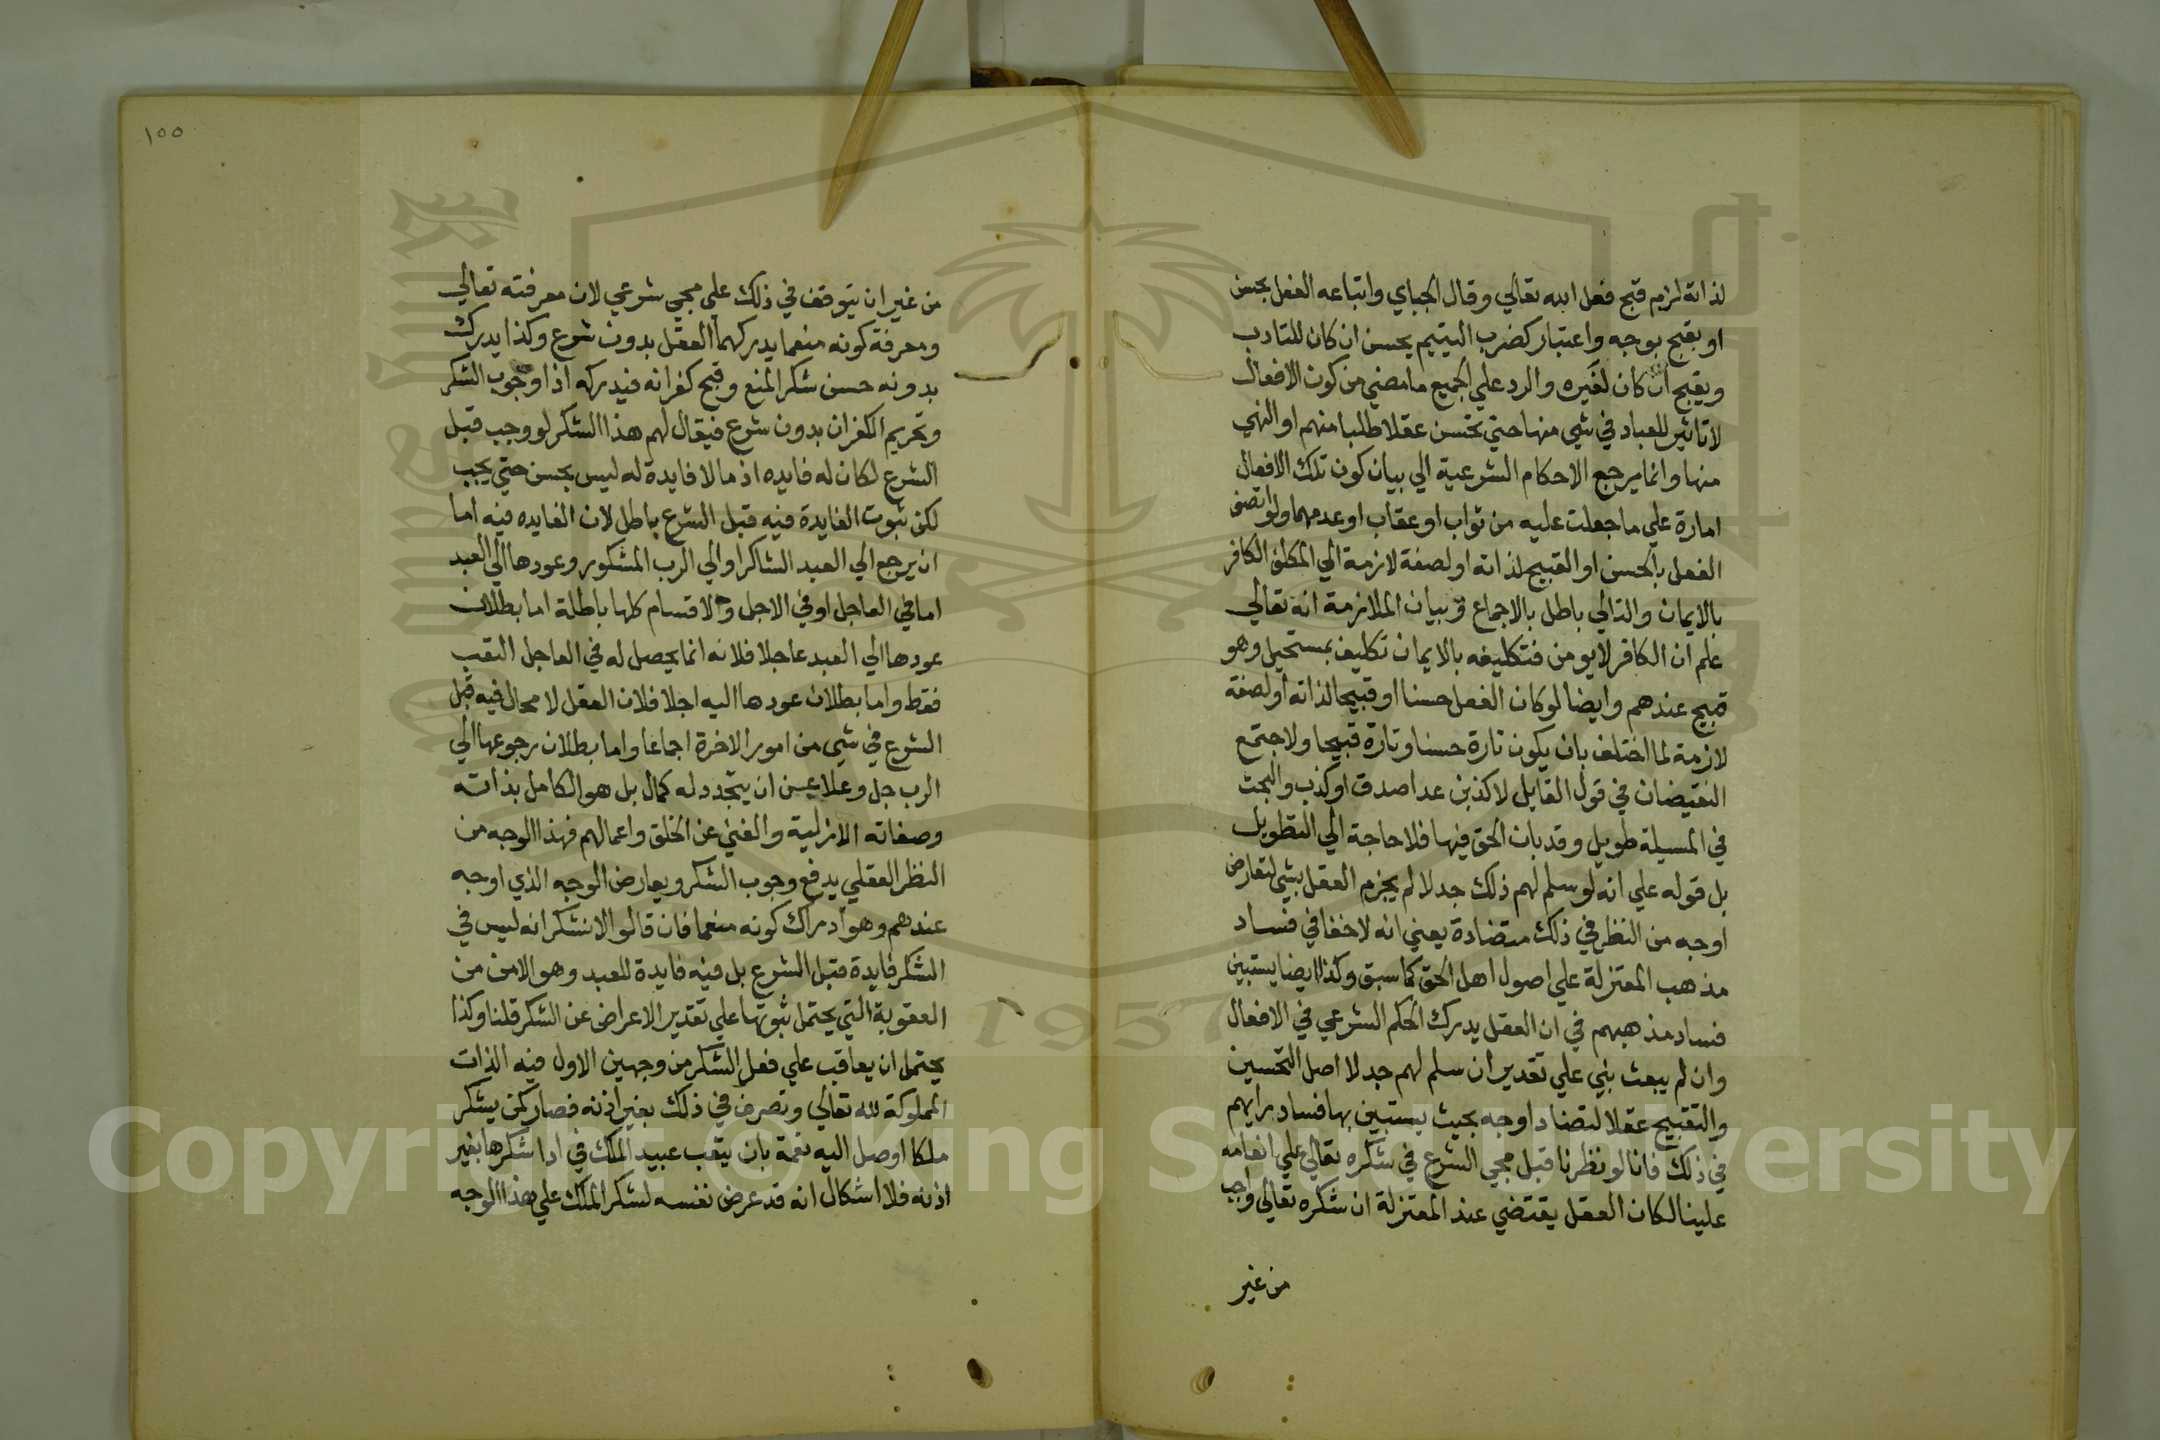 لذاته لزم قبح فعل الله تعالي وقال الجباي واتباعه الفعل يحسن
او يقبح بوجه واعتبار كضرب اليتيم يحسن ان كان للتادب
ويقبح ان كان لغيره والرد علي الجميع ما مضي من كون الافعال
لا تاثير للعباد في شي منها حتي تحسن عقلا طلبا منهم او النهي
منها وانما يرجع الاحكام الشرعية الي بيان كون تلك الافعال
امارة علي ما جعلت عليه من ثواب او عقاب او عدمهما ولو اتصف
الفعل بالحسن او القبيح لذاته او لصفة لازمة الي المكلف الكافر
بالايمان والتالي باطل بالاجماع و بيان الملازمة انه تعالي
علم ان الكافر لا يومن فتكليفه بالايمان تكليف بمستحيل وهو
قبيح عندهم وايضا لو كان الفعل حسنا او قبيحا لذاته او لصفة
لازمة لما اختلف بان يكون تارة حسنا وتارة قبيحا ولاجتمع
النقيضان في قول القايل لاكذبن غدا صدق او كذب والبحث
في المسيلة طويل وقد بان الحق فيها فلا حاجة الي التطويل
بل قوله علي انه لو سلم لهم ذلك جدلا لم يجزم العقل بشي لتعارض
اوجه من النظر في ذلك متضادة يعني انه لا خفا في فساد
مذهب المعتزلة علي اصول اهل الحق كما سبق وكذا ايضا يستبين
فساد مذهبهم في ان العقل يدرك الحكم الشرعي في الافعال
وان لم يبعث نبي علي تقدير ان سلم لهم جدلا اصل التحسين
والتقبيح عقلا لتضاد اوجه بحيث يستبين بها فساد رايهم
في ذلك فانا لو نظرنا قبل مجي الشرع في شكره تعالي علي انعامه
علينا لكان العقل يقتضي عند المعتزلة ان شكره تعالي واجب
من غير
١٥٥
من غير ان يتوقف في ذلك علي مجي شرعي لان معرفته تعالي
ومعرفة كونه منعما يدركهما العقل بدون شرع وكذا يدرك
بدونه حسن شكر المنعم وقبح كفرانه فيدركه اذا وجوب الشكر
وتحريم الكفران بدون شرع فيقال لهم هذا الشكر لو وجب قبل
الشرع لكان له فايده اذ ما لا فايدة له ليس بحسن حتي يجب
لكن ثبوت الفايدة فيه قبل الشرع باطل لان الفايده فيه اما
ان يرجع الي العبد الشاكر او الي الرب المشكور وعودها الي العبد
اما في العاجل او في الاجل والاقسام كلها باطلة اما بطلان
عودها الي العبد عاجلا فلانه انما يحصل له في العاجل التعب
فقط واما بطلان عودها اليه اجلا فلان العقل لا محال فيه قبل
الشرع في شي من امور الاخرة اجماعا واما بطلان رجوعها الي
الرب جل وعلا عن ان يتجدد له كمال بل هو الكامل بذاته
وصفاته الازلية والغني عن الخلق واعمالهم فهذا الوجه من
النظر العقلي يدفع وجوب الشكر ويعارض الوجه الذي اوجبه
عندهم وهو ادراك كونه منعما فان قالوا لا نشكر انه ليس في
الشكر فايدة قبل الشرع بل فيه فايدة للعبد وهو الامن من
العقوبة التي يحتمل ثبوتها علي تقدير الاعراض عن الشكر قلنا وكذا
يحتمل ان يعاقب علي فعل الشكر من وجهين الاول فيه الذات
المملوكة لله تعالي وتصرف في ذلك بغير اذنه فصار كمن يشكر
ملكا اوصل اليه نعمة بان يتعب عبيد الملك في ادا شكرها بغير
اذنه فلا اشكال انه قد عرض نفسه لشكر الملك علي هذا الوجه
1957
Copyright © King Saud University